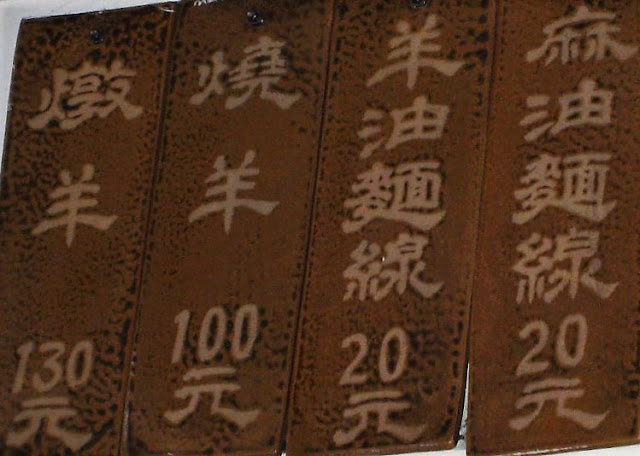 麻油麵線20元
羊油麵線20元
燒羊100元
燉羊130元